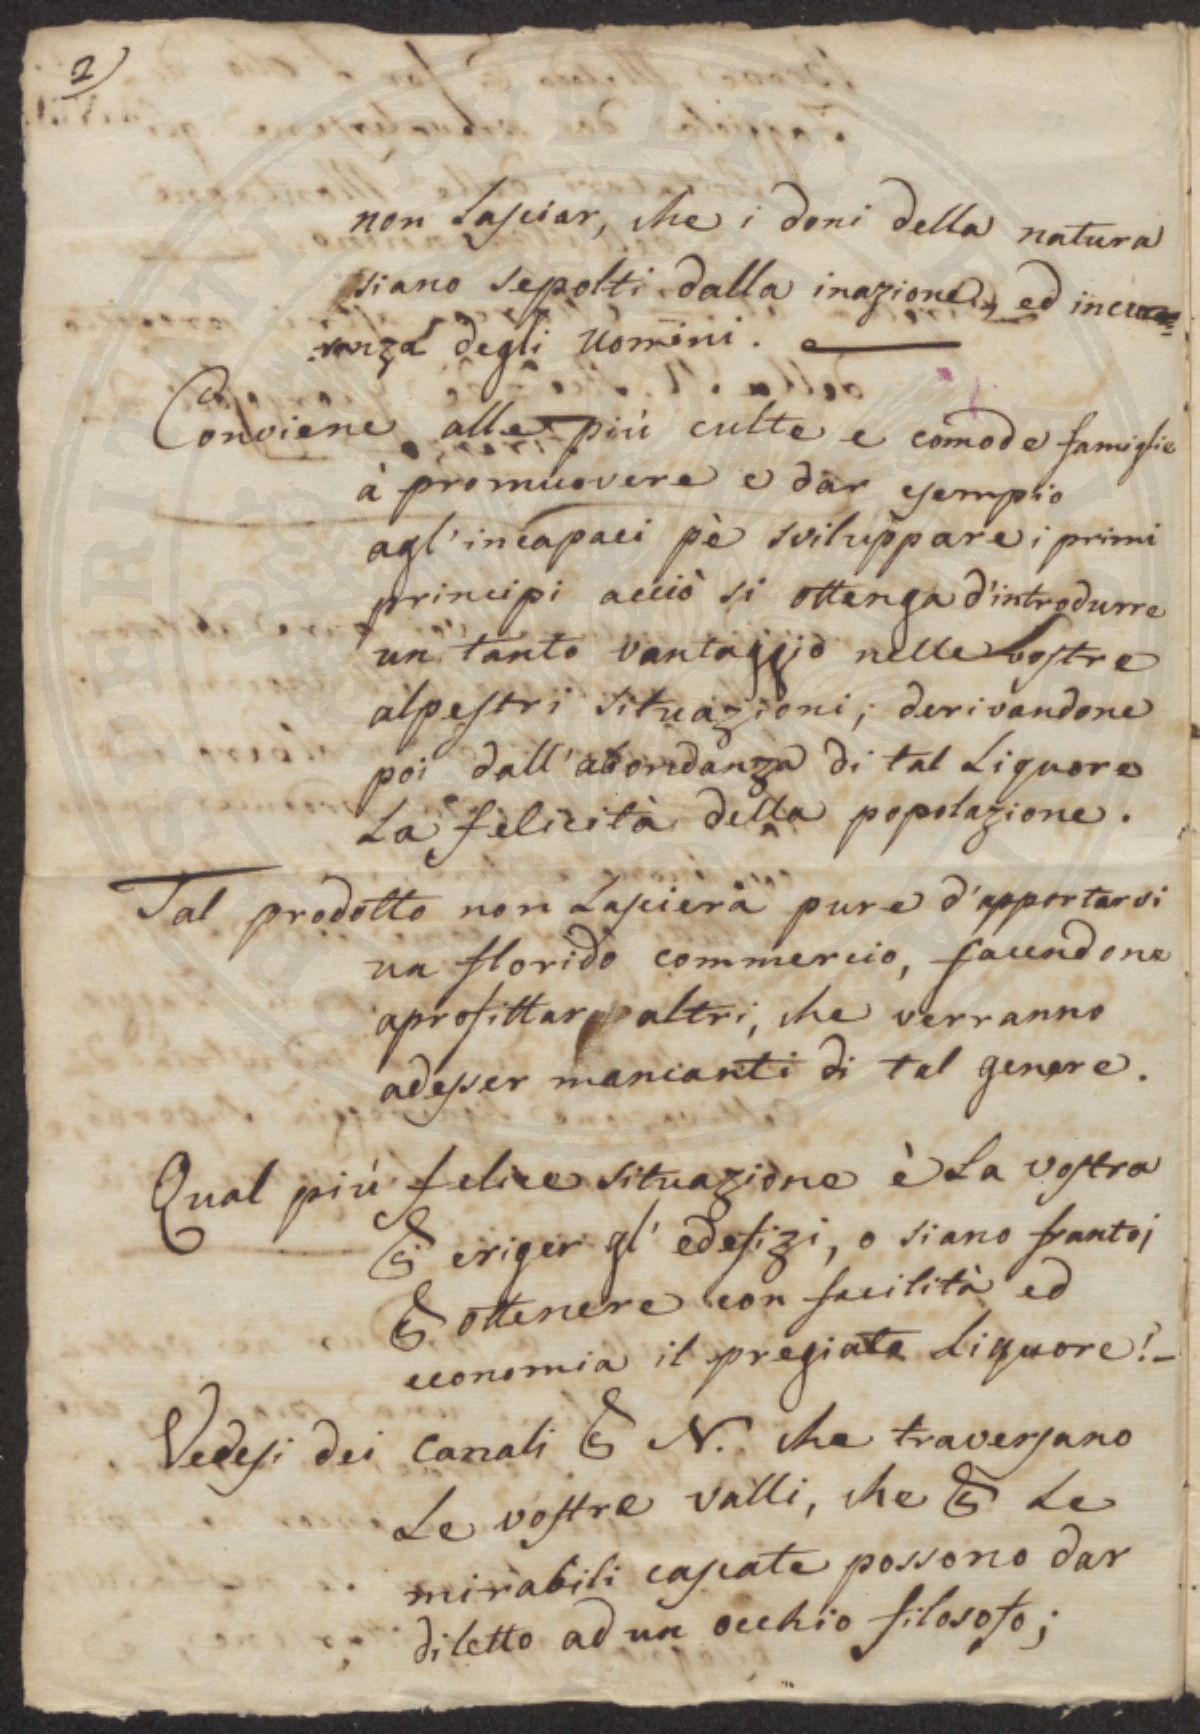 2
non Lasciar, che i doni della natura
siano sepolti dalla inazione, ed incu=
ranza degli Uomini.
Conviene alle più culte e comode famiglie
à promuovere e dar esempio
agl'incapaci pè sviluppare i primi
principi acciò si ottenga d'introdurre
un tanto vantaggio nelle vostre
alpestri situazioni; derivandone
poi dall'abondanza di tal Liquore
La felicità della popolazione.
Tal prodotto non Lascierà pure d'apportarsi
un florido commercio, facendone
aprofittare altri, che verranno
adesser mancanti di tal genere.
Qual più felice situazione è La vostra
& eriger gl'edefizi, o siano frantoj
& ottenere con facilità ed
economia il pregiato Liquore!_
Vedesi dei canali & N. che traversano
Le vostre valli, che & Le
mirabili cascate possono dar
diletto ad un occhio filosofo;